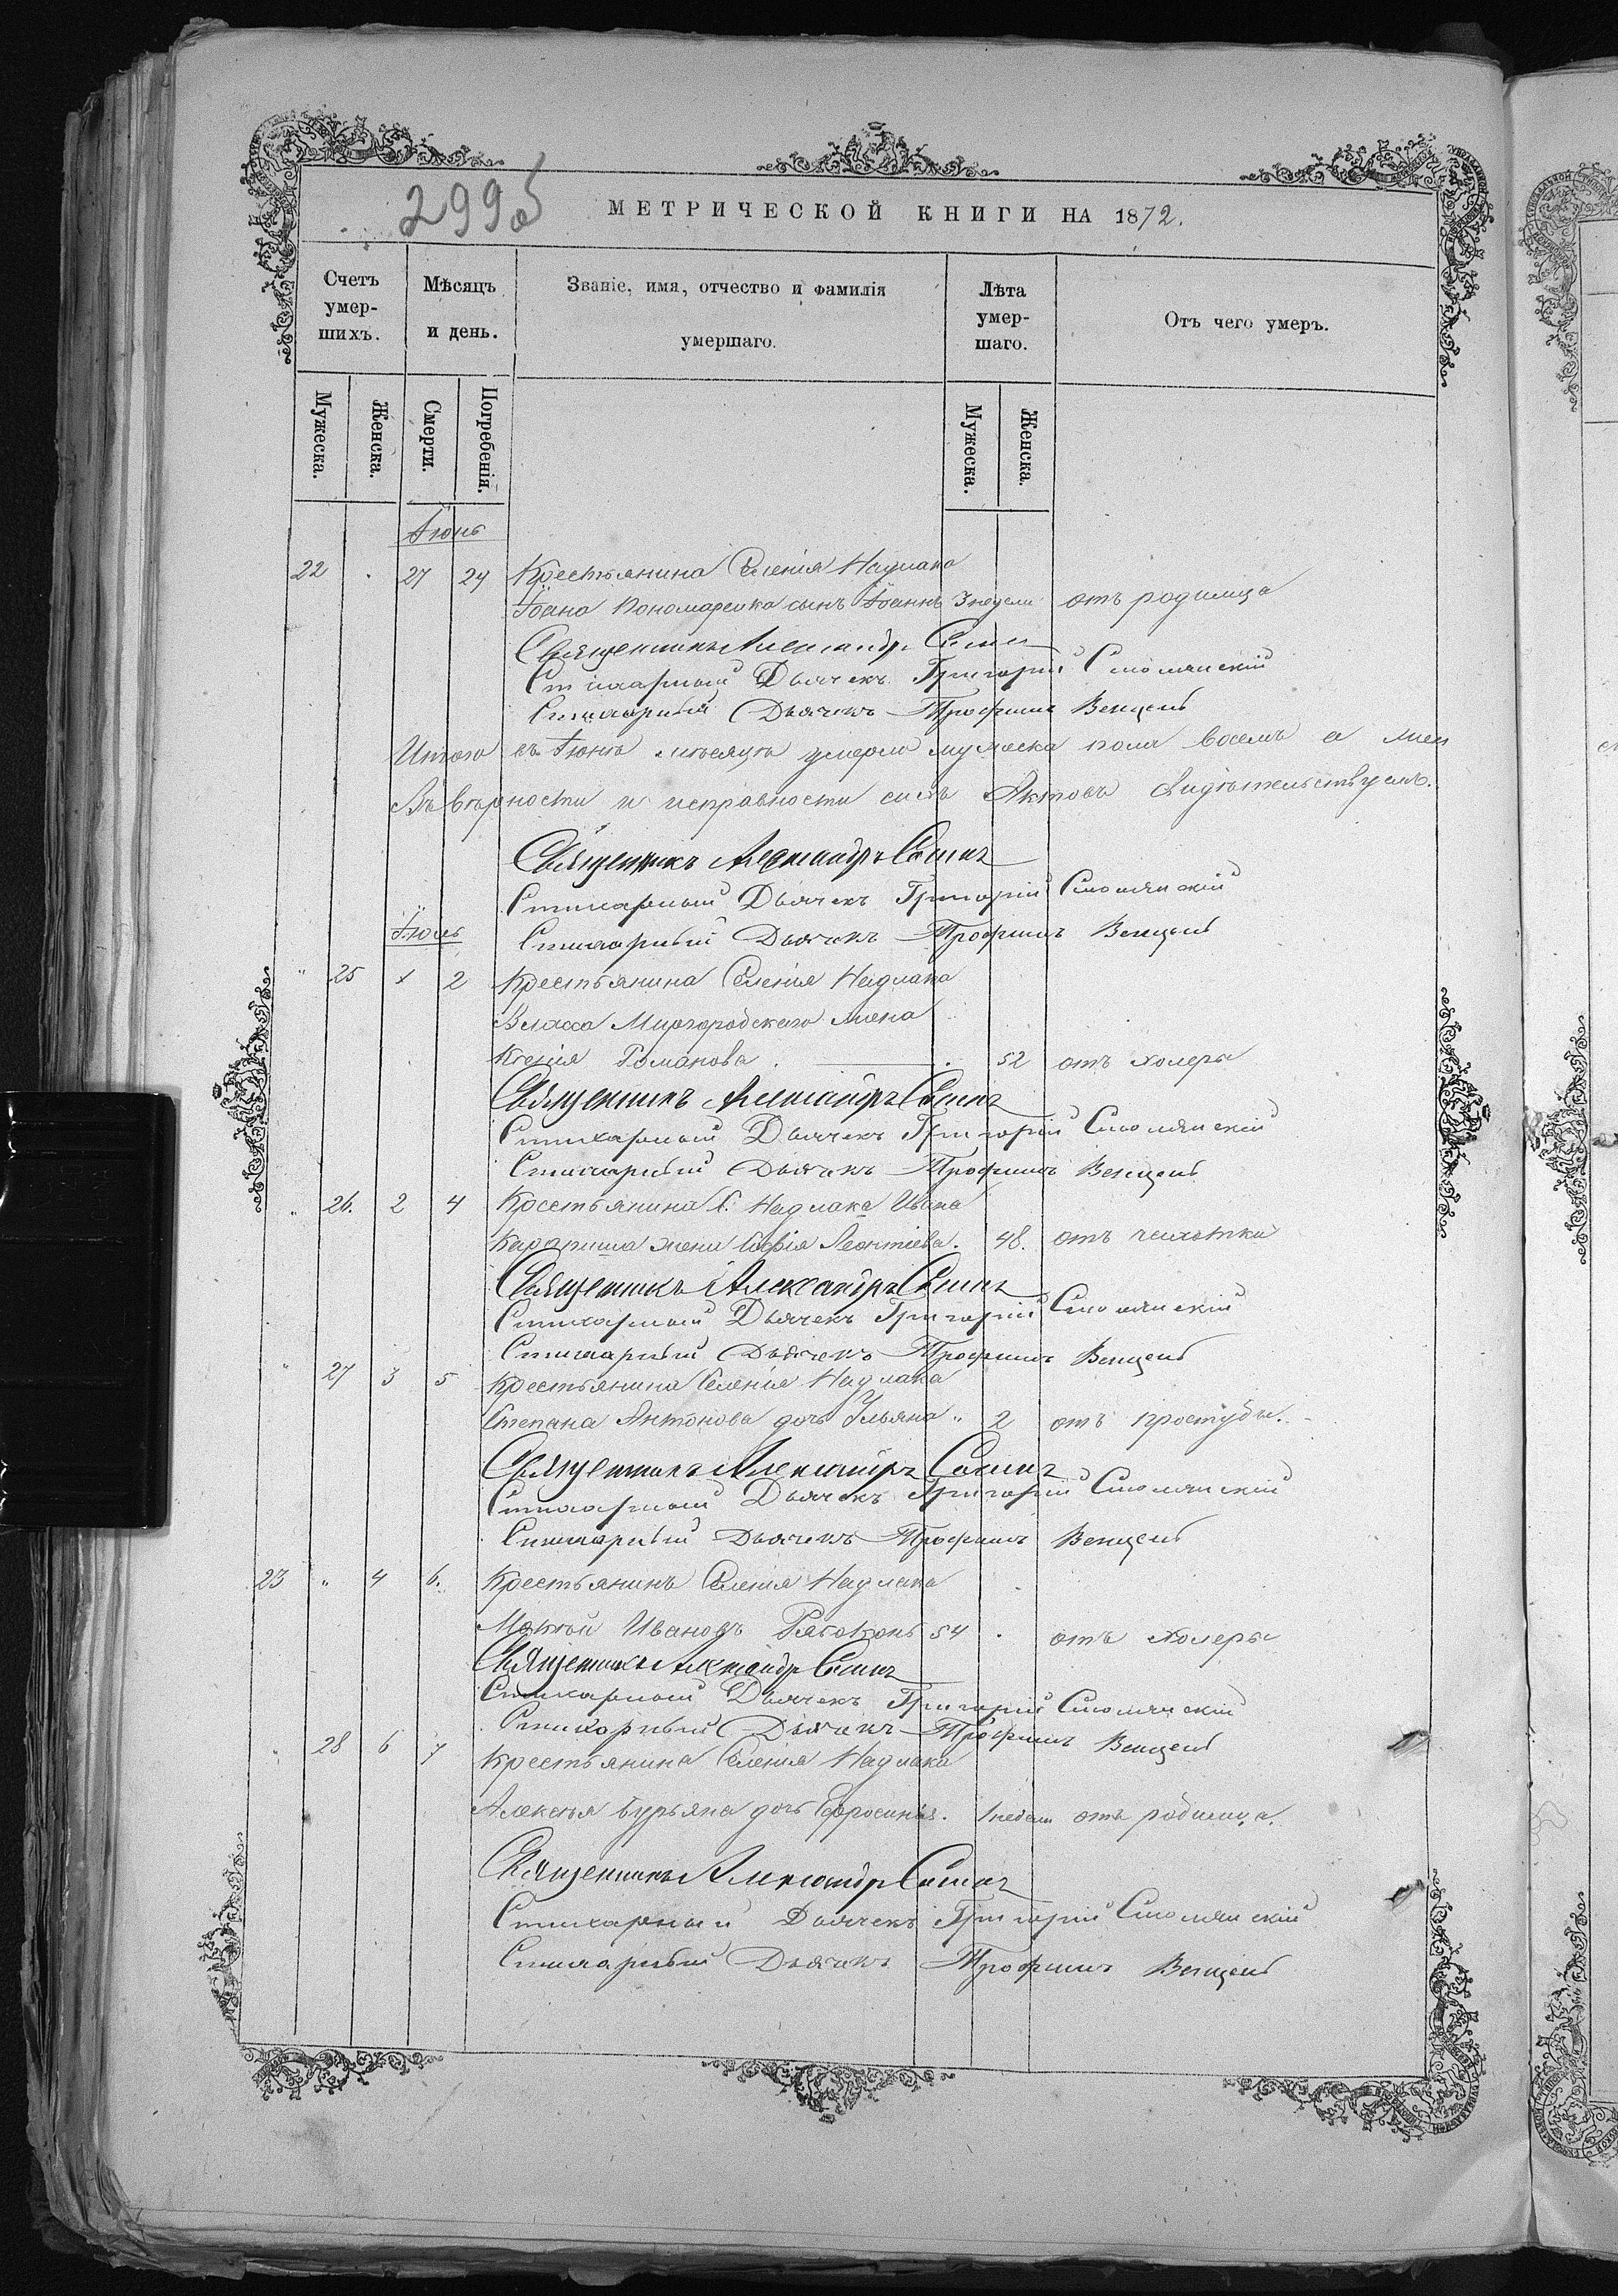 299 об
МЕТРИЧЕСКОЙ КНИГИ НА 1872.
Счетъ умер-шихъ.
Мѣсяцъ и день.
Званіе, имя, отчество и фамилія умершаго.
Лѣта умер-шаго.
Отъ чего умеръ.
Мужеска.
Женска.
Смерти.
Погребенія.
Мужеска.
Женска.
Іюнь
22 27 29 Крестьянина Селенія Надлака
Іоана Пономаренка сынъ Іоаннъ 3 недели отъ родимца
Священникъ Александръ
Стихарный Дьячекъ Григорій Смолянскій
Стихарный Дьячекъ Трофимъ Венцель
Итого въ Іюнѣ мѣсяцѣ умерло мужеска пола восемь а жен
Въ вѣрности и исправности сихъ Актовъ свидѣтельствуемъ.
Священникъ Александръ
Стихарный Дьячекъ Григорій Смолянскій
Іюль
Стихарный Дьячекъ Трофимъ Венцель
" 25 1 2 Крестьянина Селенія Надлака
Власа Миргородскаго жена
Ксенія Романова 52 отъ холеры
Священникъ Александръ
Стихарный Дьячекъ Григорій Смолянскій
Стихарный Дьячекъ Трофимъ Венцель
" 26. 2 4 Крестьянина С. Надлака Ивана
жена Софія Леонтіева. 48. отъ чахотки
Священникъ Александръ
Стихарный Дьячекъ Григорій Смолянскій
Стихарный Дьячекъ Трофимъ Венцель
" 27 3 5 Крестьянина Селенія Надлака
Степана Антонова дочь Ульяна " 2 отъ простуды.
Священникъ Александръ
Стихарный Дьячекъ Григорій Смолянскій
Стихарный Дьячекъ Трофимъ Венцель
23 " 4 6. Крестьянинъ Селенія Надлака
Матѳей Ивановъ Рябоконь 54 . отъ холеры
Священникъ Александръ
Стихарный Дьячекъ Григорій Смолянскій
Стихарный Дьячекъ Трофимъ Венцель
" 28 6 7 Крестьянина Селенія Надлака
Алексѣя Бурьяна дочь Ефросинья. 1 недели отъ родимца.
Священникъ Александръ
Стихарный Дьячекъ Григорій Смолянскій
Стихарный Дьячекъ Трофимъ Венцель